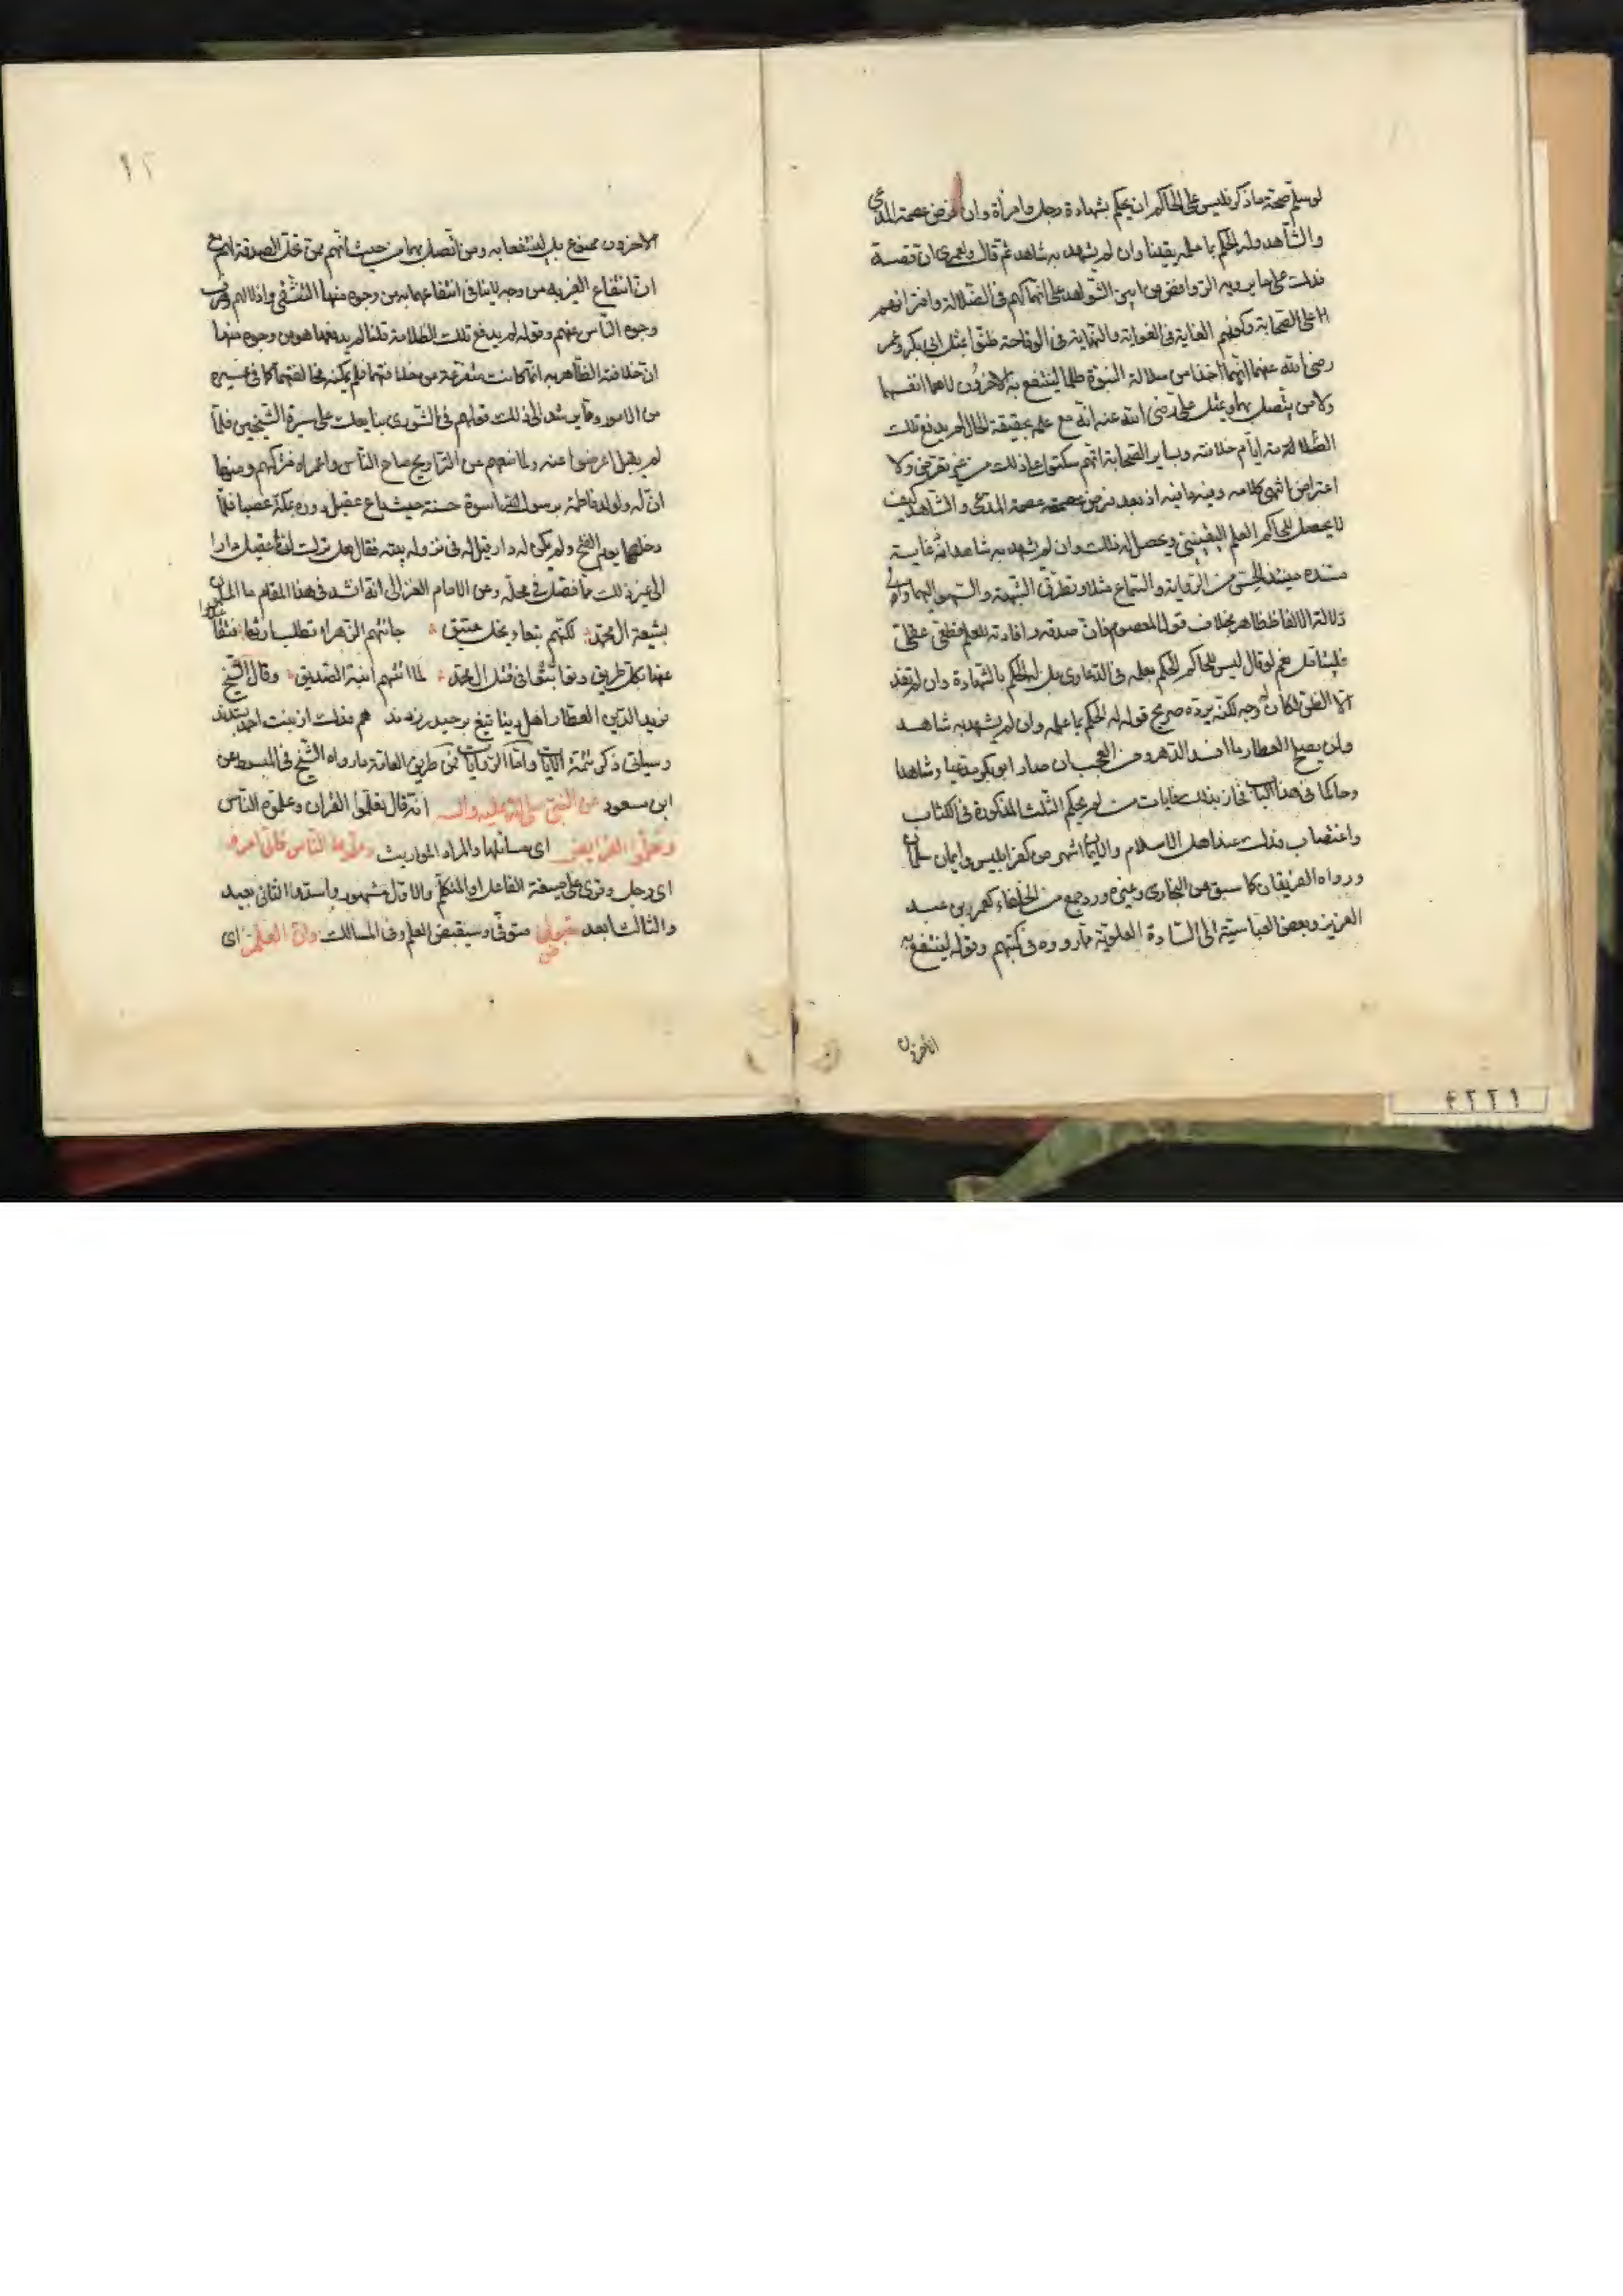 لو سلم صحة ما ذكر فليس على الحاكم ان يحكم بشهادة رجل وامرأة وان فرض عصمة المدعى
والشاهد وله الحكم بما علمه يقينا وان لم يشهد به شاهد ثم قال ولعمرى ان قصة
فدك على ما يرويه الروافض من ابين الشواهد على انهماكهم فى الضلالة وافترائهم
على الصحابة وكونهم الغاية فى الغواية والنهاية فى الوقاحة ظنوا بمثل ابى بكر وعمر
رضى الله عنهما انهما اخذا من سلالة النبوة ظلما لينتفع به الاخرون لا هما انفسهما
ولا من يتصل بهما وبمثل على رضى الله عنه انه مع علمه بحقيقة الحال لم يدفع تلك
الظلامة ايام خلافته وبساير الصحابة انهم سكتوا على ذلك من غير تعرض ولا
اعتراض انتهى كلامه وفيه ما فيه اذ بعد فرض عصمة المدعى والشاهد كيف
لا يحصل للحاكم العلم اليقينى ويحصل له ذلك وان لم يشهد به شاهد لان غاية
مستنده حينئذ الحس من الرواية والسماع مثلا وتطرق الشبهة والسهو اليهما وان
دلالة الالفاظ ظاهر بخلاف قول المعصوم فان صدقه وافادته للعلم قطعى عقلى
فليتأمل نعم لو قال ليس للحاكم الحكم بعلمه فى الدعاوى بل له الحكم بالشهادة وان لم تفد
الا الظن لكان له وجه لكنه يرده صريح قوله له الحكم بما علمه وان لم يشهد به شاهد
ولن يصلح العطار ما افسد الدهر ومن العجب ان صار ابو بكر مدعيا وشاهدا
وحاكما فى هذا الباب فحاز بذلك غايات من لم يحكم الثلث المذكورة فى الكتاب
واغتصاب فدك عند اهل الاسلام والايمان اشهر من كفر ابليس وايمان سلمان
ورواه الفريقان كما سبق من البخارى وغيره ورد جمع من الخلفاء كعمر بن عبد
العزيز وبعض العباسية الى السادة العلوية مما رووه فى كتبهم وقوله لينتفع به
الاخرون
الاخرون ممنوع بل لينتفعا به ومن اتصل بهما من حيث انهم ممن تحل الصدقة لهم مع
ان انتفاع الغير به من وجه لا ينافى انتفاعهما به من وجوه منها التشفى واذلالهم وصرف
وجوه الناس عنهم وقوله لم يدفع تلك الظلامة قلنا لم يدفعها هو من وجوه منها
ان خلافته الظاهريه انما كانت متفرعة من خلافتهما فلم يمكنه مخالفتهما كما فى غيره
من الامور وقد يرشد الى ذلك قولهم فى الشورى نبايعك على سيرة الشيخين فلما
لم يقبل اعرضوا عنه ولما منعهم عن التراويح صاح الناس واعمراه فتركهم ومنها
ان له ولولد فاطمة برسول الله اسوة حسنة حيث باع عقيل دوره بمكة غصبا فلما
دخلها يوم الفتح ولم يكن له دار قيل له فى نزوله بيته فقال هل ترك لنا عقيل دارا
الى غير ذلك مما فصل فى محله وعن الامام الغزالى انه انشد فى هذا المقام ما
بشيعة ال محمد لكنهم بتعاد نحل عتيق جائتهم الزهراء تطلب ارثها
عنها بكل طريق وتواثبوا فى قتل ال محمد لما اتتهم ابنة الصديق وقال الشيخ
فريد الدين العطار اهل دينا تيغ بر حيدر زدند هم فدك از بنت احمد بستدند
وسياتى ذكر تتمة الايات واما الروايات فمن طريق العامة ما رواه الشيخ فى المبسوط عن
ابن مسعود عن النبى صلى الله عليه واله انه قال تعلموا القران وعلموه الناس
وتعلموا الفرايض اى مسائلها والمراد المواريث وعلموها الناس فانى امرؤ
اى رجل وقرئ على صيغة الفاعل او المتكلم والاول مشهور واستدوا الثانى بعيد
والثالث ابعد مقبوض متوفى وسيقبض العلم وفى المسالك وان العلم اى
٤٢٢١